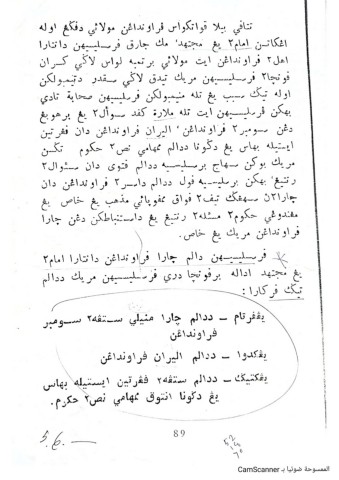 تتاڤي بيلا قواتكواس ڤراونداڠن مولائي دڤڬڠ اوله
اڠكاتن امام٢ يڠ مجتهد، مك جارق ڤرسليسيهن دانتارا
اهل٢ ڤراونداڠن ايت مولائي برتمبه لواس لاڬي كران
ڤونچا٢ ڤرسليسيهن مريك تيدق لاڬي سقدر دتيمبولكن
اوله تيڬ سبب يڠ تله منيمبولكن ڤرسليسيهن صحابة تادي
بهكن ڤرسليسيهن ايت تله ملارة كڤد سوٴال٢ يڠ برهوبوڠ
دڠن سومبر٢ ڤراونداڠن، اليران ڤراونداڠن دان ڤقرتين
ايستيله بهاس يڠ دڬونا ددالم ممهامي نص٢ حكوم. تڬسن
مريك بوكن سهاج برسليسيه ددالم فتوى دان سئوال٢
رنتيڠ، بهكن برسليسيه ڤول ددالم داسر٢ ڤراونداڠن دان
چارا٢ن سهڠڬ تيڤ٢ ڤواق ممڤوڽائي مذهب يڠ خاص يڠ
مڠندوڠي حكوم٢ مسئله٢ رنتيڠ يڠ داستنباطكن دڠن چارا
ڤراونداڠن مريك يڠ خاص.
ڤرسليسيهن دالم چارا ڤراونداڠن دانتارا امام٢
يڠ مجتهد اداله برڤونچا دري ڤرسليسيهن مريك ددالم
تيڬ ڤركارا:
يڠڤرتام — ددالم چارا منيلي ستڠه٢ سومبر
ڤراونداڠن
يڠكدوا — ددالم اليران ڤراونداڠن
يڠكتيڬ — ددالم ستڠه٢ ڤڠرتين ايستيله بهاس
يڠ دڬونا انتوق ممهامي نص٢ حكوم.
89
الممسوحة ضوئيا بـ CamScanner